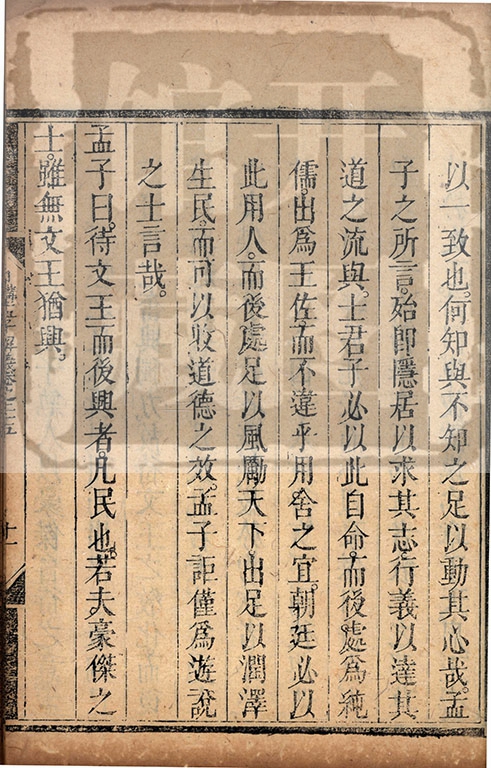 以一致也。何知與不知之足以動其心哉。孟
子之所言。殆即隱居以求其志。行義以達其
道之流與。士君子必以此自命。而後處為純
儒。出為王佐。而不違乎用舍之宜。朝廷必以
此用人。而後處足以風勵天下。出足以潤澤
生民。而可以收道德之效。孟子詎僅為遊說
之士言哉。
孟子曰。待文王而後興者。凡民也。若夫豪傑之
士。雖無文王猶興。
日講
解義卷
十一